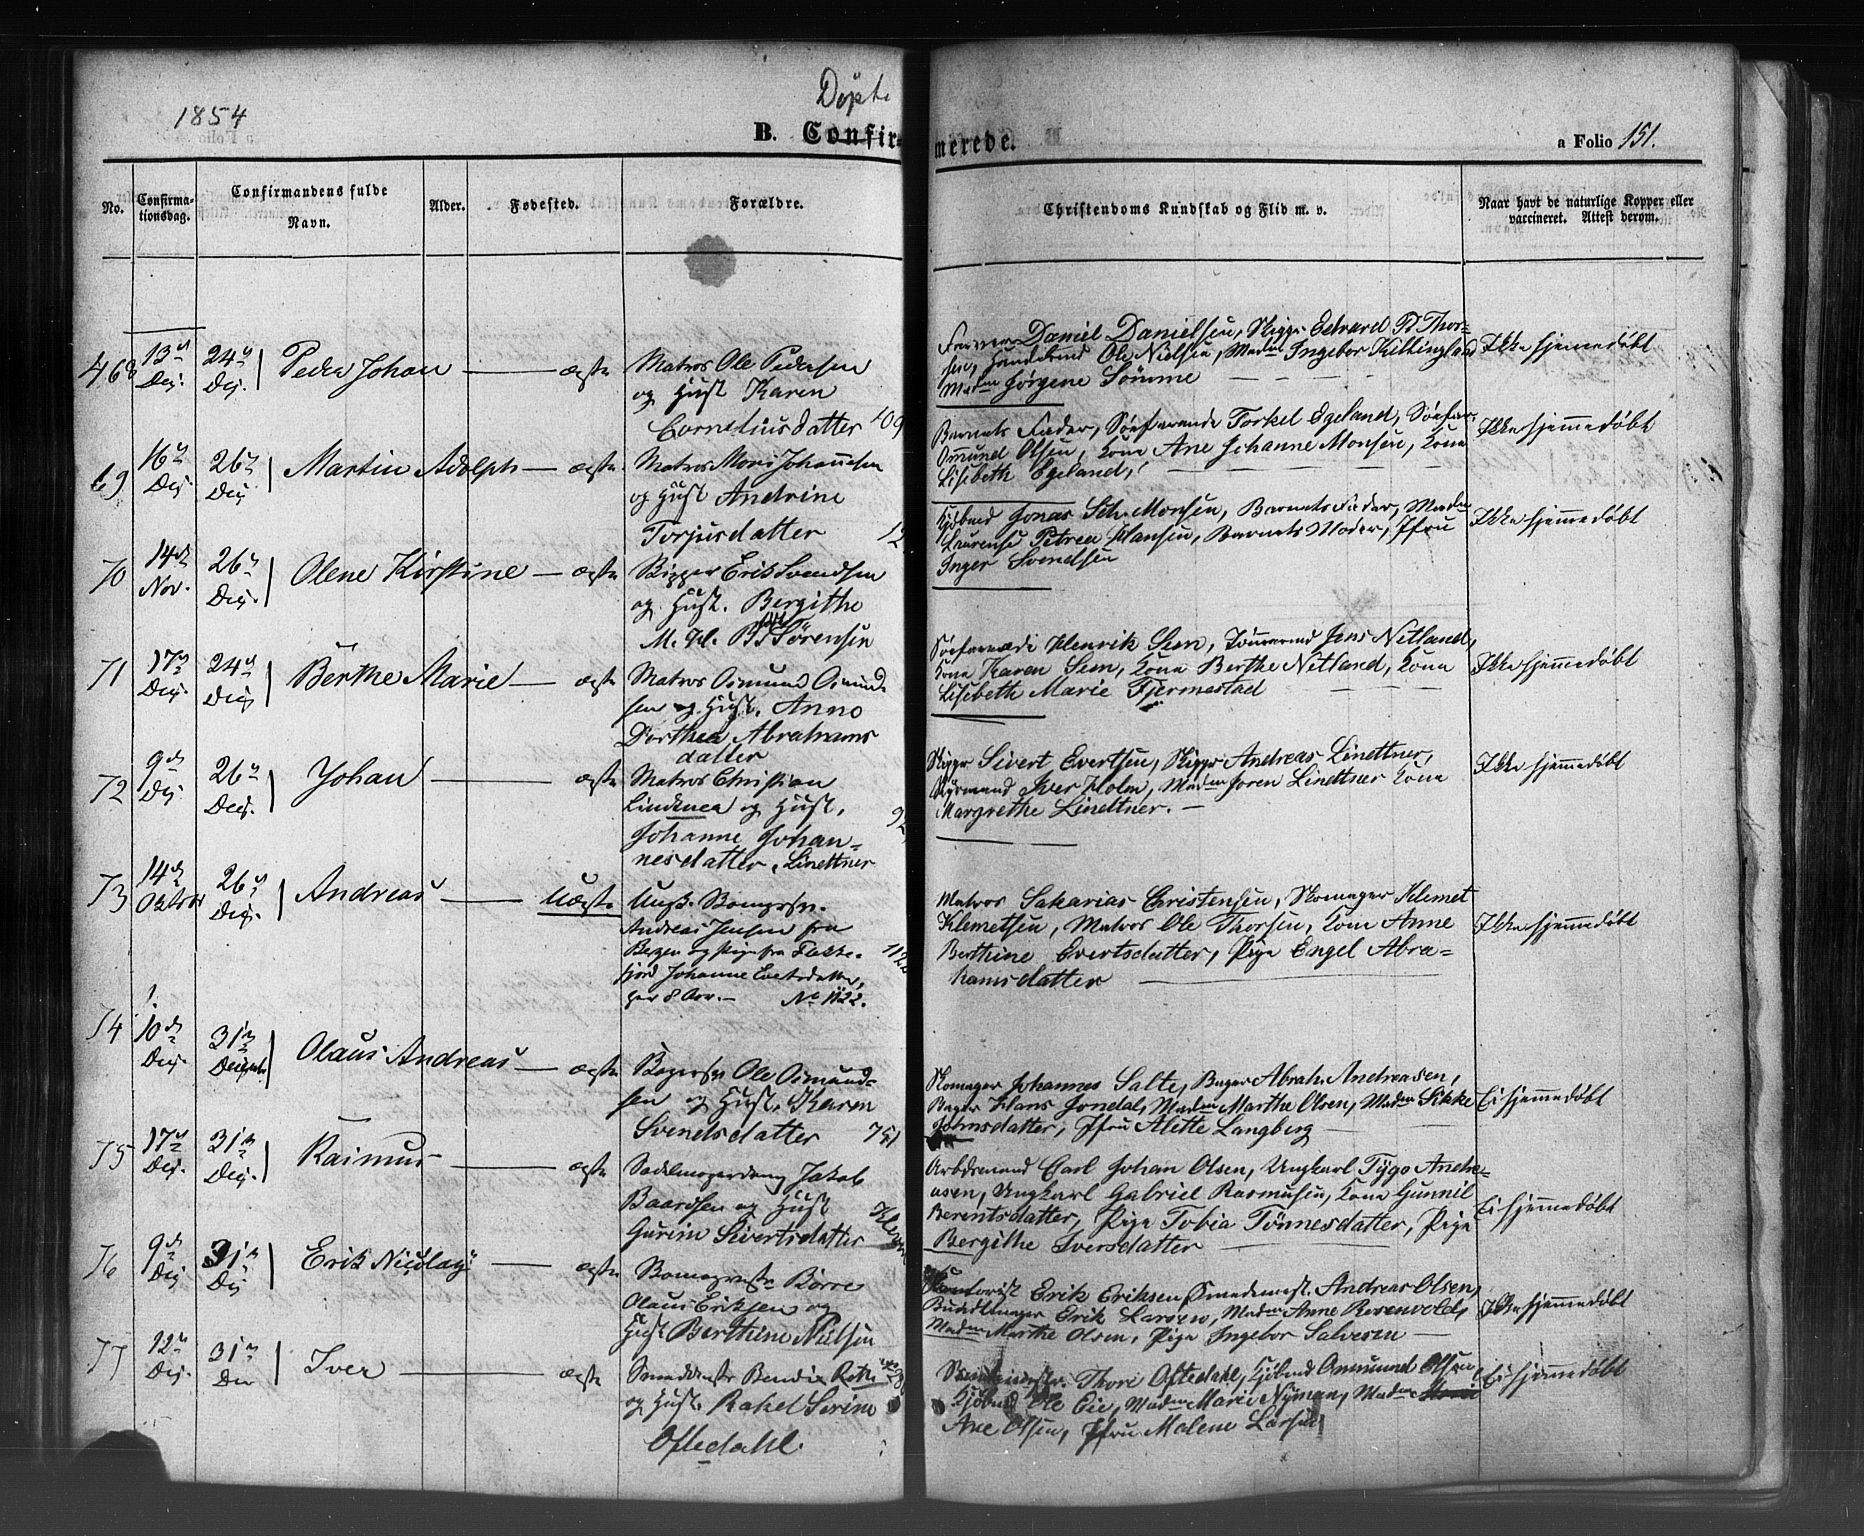 1854
Døpte
B. Confirmerede.
a Folio 151.
No.
Confirma-
tionsdag.
Confirmandens fulde
Navn.
Alder.
Fødested.
Forældre.
Christendoms Kundskab og Flid m. v.
Naar havt de naturlige Kopper eller
vaccineret. Attest derom.
468 13de Dec. 24de Dec. Peder Johan — ægte
Matros Ole Pedersen
og Hust Karen
Corneliusdatter 409
Farver Daniel Danielsen, Skippr Edvard P Thor-
sen, Handelsmd Ole Nielsen, Madm Ingebor Killingland
Madm Jørgene Sømme
Ikke hjemmedøbt
69 16de Dec. 26de Dec. Martin Adolph — ægte
Matros Mons Johannesen
og Hust Andrine
Torjusdatter 12
Barnets Fader, Søefarende Torkel Egeland, Søefar.
Osmund Olsen, Kone Ane Johanne Monsen, Kone
Lisebeth Egeland,
Ikke hjemmedøbt
70 14de Nov. 26de Dec. Olene Kirstine — ægte
Skipper Erik Svendsen
og Hust. Bergithe
M. Sørensen
Kjøbmd Jonas Sch. Monsen, Barnets Fader, Madm
Laurense Petrea Hansen, Barnets Moder, Jfru
Inger Svendsen
Ikke hjemmedøbt
71 17de Dec. 24de Dec. Berthe Marie — ægte
Matros Osmund Osmund-
sen og Hust. Anne
Dorthea Abrahams
datter
Søefarende Henrik Sem, Tømmermd Jens Netland,
Kone Karen Sem, Kone Berthe Netland, Kone
Lisebeth Marie Fjermestad
Ikke hjemmedøbt
72 9de Dec 26de Dec. Johan — ægte
Matros Christian
Lindtner og Hust.
Johanne Johan-
nesdatter. Linettner
92
Skippr Sivert Evertsen, Skippr Andreas Linettner,
Styrmand Iver Holm, Madm Joren Linettner Kone
Margrethe Linettner.
Ikke hjemmedøbt
73 14de Oktober 26de Dec. Andreas — Uægte
Ungk. Bomgrsv.
Andreas Jensen fra
Bergen og Pige fra Flekke-
fjord Johanne Evertsdatter,
No 1122.
1122
Matros Sakarias Christensen, Skomager Klemet
Klemetsen, Matros Ole Thorsen, Kone Anne
Berthine Evertsdatter, Pige Engel Abra-
hamsdatter
Ikke hjemmedøbt
74 10de Dec. 31te Decembr Olaus Andreas — ægte
Bagersv Ole Osmund-
sen og Hust. Karen
Svendsdatter 751
Skomager Johannes Salte, Bager Abrah. Andreasen,
Bager Hans Jondal, Madm Marthe Olsen, Madm Sikke
Johnsdatter, Jfru Alette Langberg
Ei hjemmedøbt
75 17de Dec. 31te Dec. Rasmus — ægte
Sadelmagerdreng Jakob
Baardsen og Hust
Gurine Sivertsdatter
Arbdsmand Carl Johan Olsen, Ungkarl Tygo Andre-
asen, Ungkarl Gabriel Rasmusen, Kone Gunnil
Berentsdatter, Pige Tobia Tønnesdatter, Pige
Bergithe Iversdatter
Ei hjemmedøbt
76 9de Dec 31te Dec Erik Nicolay — ægte
Børre
Olaus Eriksen og
Hust Berthine Nielsen
Kontorist Erik Eriksen, Smedemest. Andreas Olsen,
Erik Larsen, Madm Anne Rosenvold,
Madm Marthe Olsen, Pige Ingebor Salvesen
Ikke hjemmedøbt
77 12te Dec. 31te Dec Iver — ægte
og Hust. Rakel Serine
Oftedahl.
Thore Oftedahl, Kjøbmd Ommund Olsen
Kjøbmd Ole Eie, Madm Marie Nyman, Madm
Ane Olsen, Jfru Malene Larsen
Ei hjemmedøbt